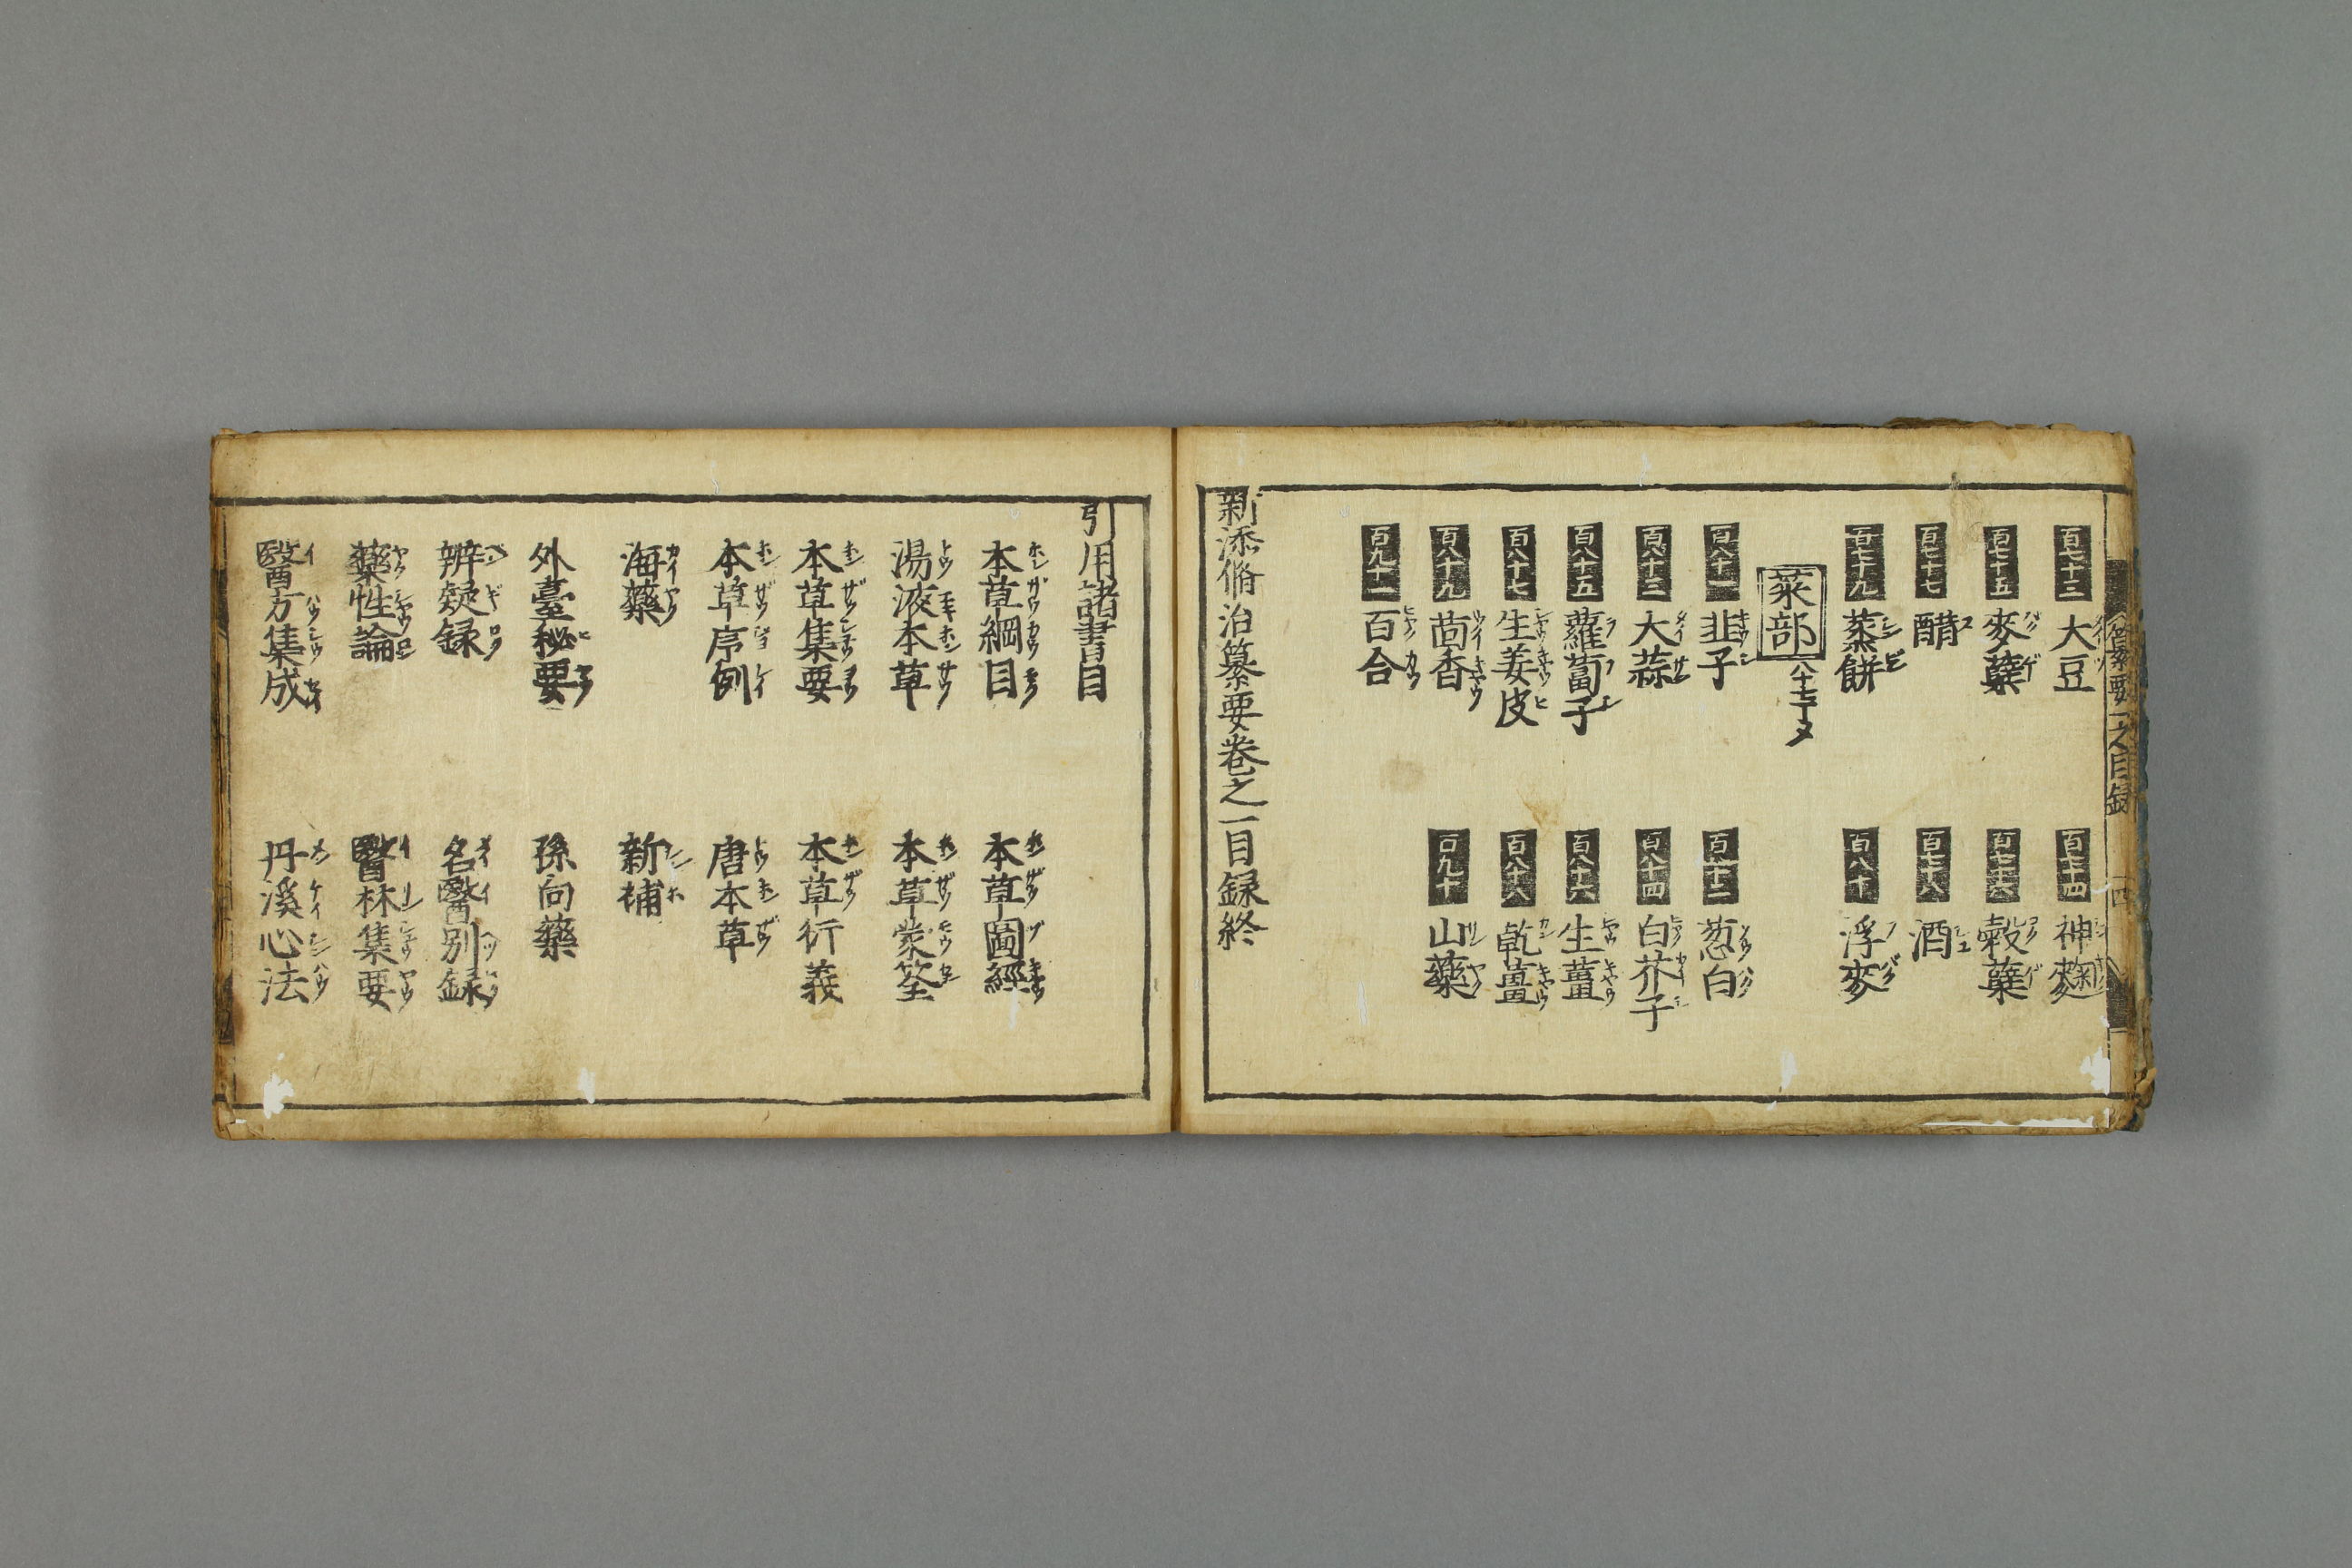 百七十三 大豆
百七十四 神麴
百七十五 麥蘖
百七十六 穀蘖
百七十七 醋
百七十八 酒
百七十九 蒸餅
百八十 浮麥
菜部 八十七丁メ
百八十一 韭子
百八十二 葱白
百八十三 大蒜
百八十四 白芥子
百八十五 蘿蔔子
百八十六 生薑
百八十七 生姜皮
百八十八 乾薑
百八十九 茴香
百九十 山藥
百九十一 百合
新添脩治纂要卷之一目録終
引用諸書目
本草綱目
本草圖經
湯液本草
本草蒙筌
本草集要
本草衍義
本草序例
唐本草
海藥
新補
外臺秘要
孫向藥
辨疑録
名醫別録
藥性論
醫林集要
醫方集成
丹溪心法